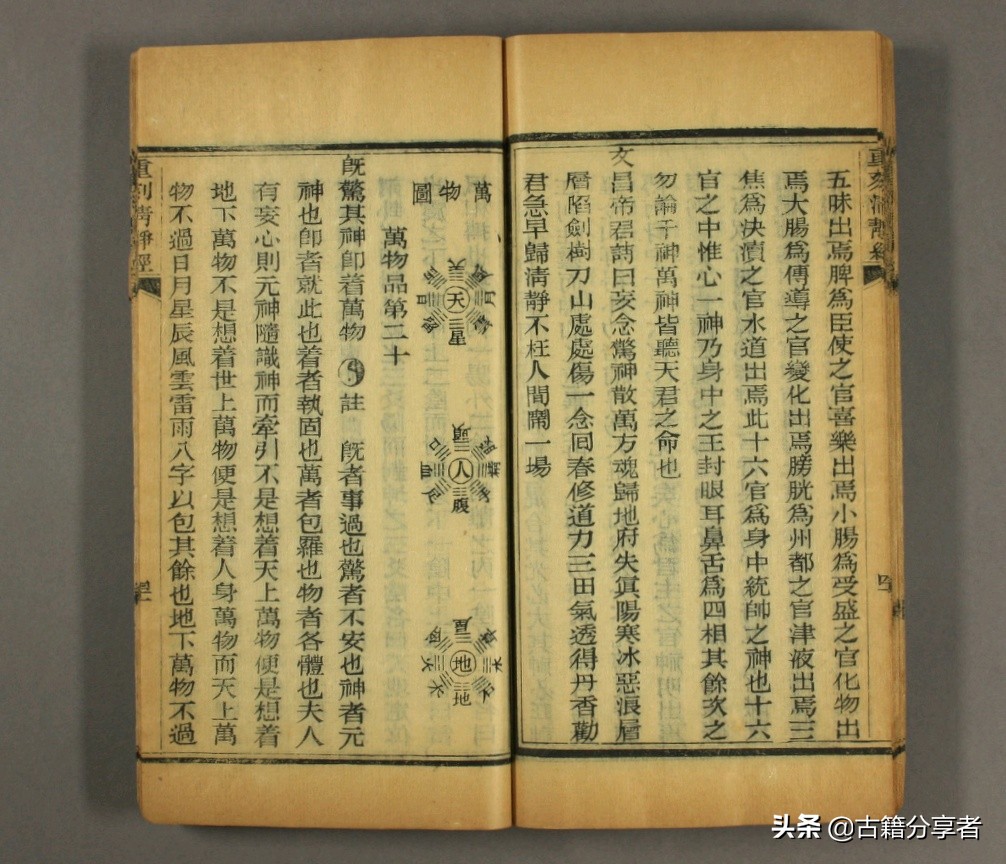 五味出焉脾爲臣使之官喜樂出焉小腸爲受盛之官化物出
焉大腸爲傳導之官變化出焉膀胱爲州都之官津液出焉三
焦爲決瀆之官水道出焉此十六官爲身中統帥之神也十六
官之中惟心一神乃身中之王封眼耳鼻舌爲四相其餘次之
勿論千神萬神皆聽天君之命也
文昌帝君詩曰妄念驚神散萬方魂歸地府失眞陽寒冰惡浪層
層陷劍樹刀山處處傷一念囘春修道力三田氣透得丹香勸
君急早歸清靜不枉人間鬧一場
萬物圖
天
星
人
腹
頭
地
地
萬物品第二十
旣驚其神卽着萬物 註 旣者事過也驚者不安也神者元
神也卽者就此也着者執固也萬者包羅也物者各體也夫人
有妄心則元神隨識神而牽引不是想着天上萬物便是想着
地下萬物不是想着世上萬物便是想着人身萬物而天上萬
物不過日月星辰風雲雷雨八字以包其餘也地下萬物不過
重刻清靜經
头条 @古籍分享者